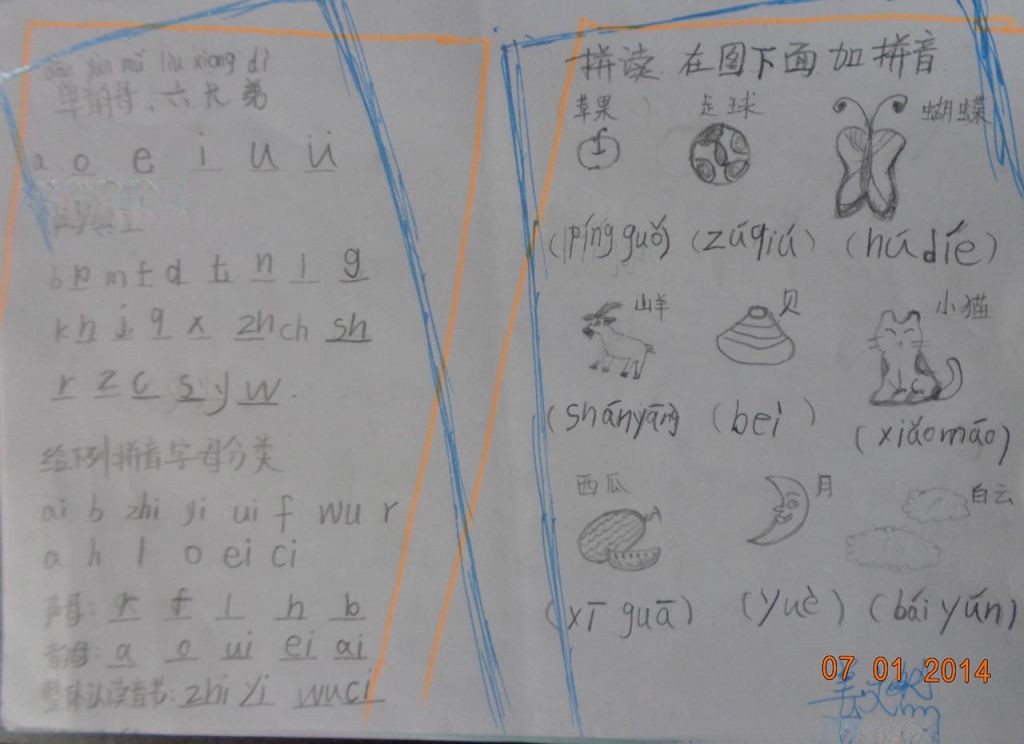 dān yùn mǔ liù xiong dì
单韵母、六兄弟
a o e i u ü
b p m f d t n l g
k h j q x zh ch sh
r z c s y w.
给下列拼音字母分类
ai b zhi yi ui f wu r
a h l o ei ci
声母: r f l h b
韵母: a o ui ei ai
整体认读音节: zhi yi wu ci
拼读 在图下面加拼音
苹果 足球 蝴蝶
(píng guǒ) (zú qiú) (hú díe)
山羊 贝 小猫
(shānyáng) (bei) (xiǎomáo)
西瓜 月 白云
(xī guā) (yuè) (bái yún)
07 01 2014